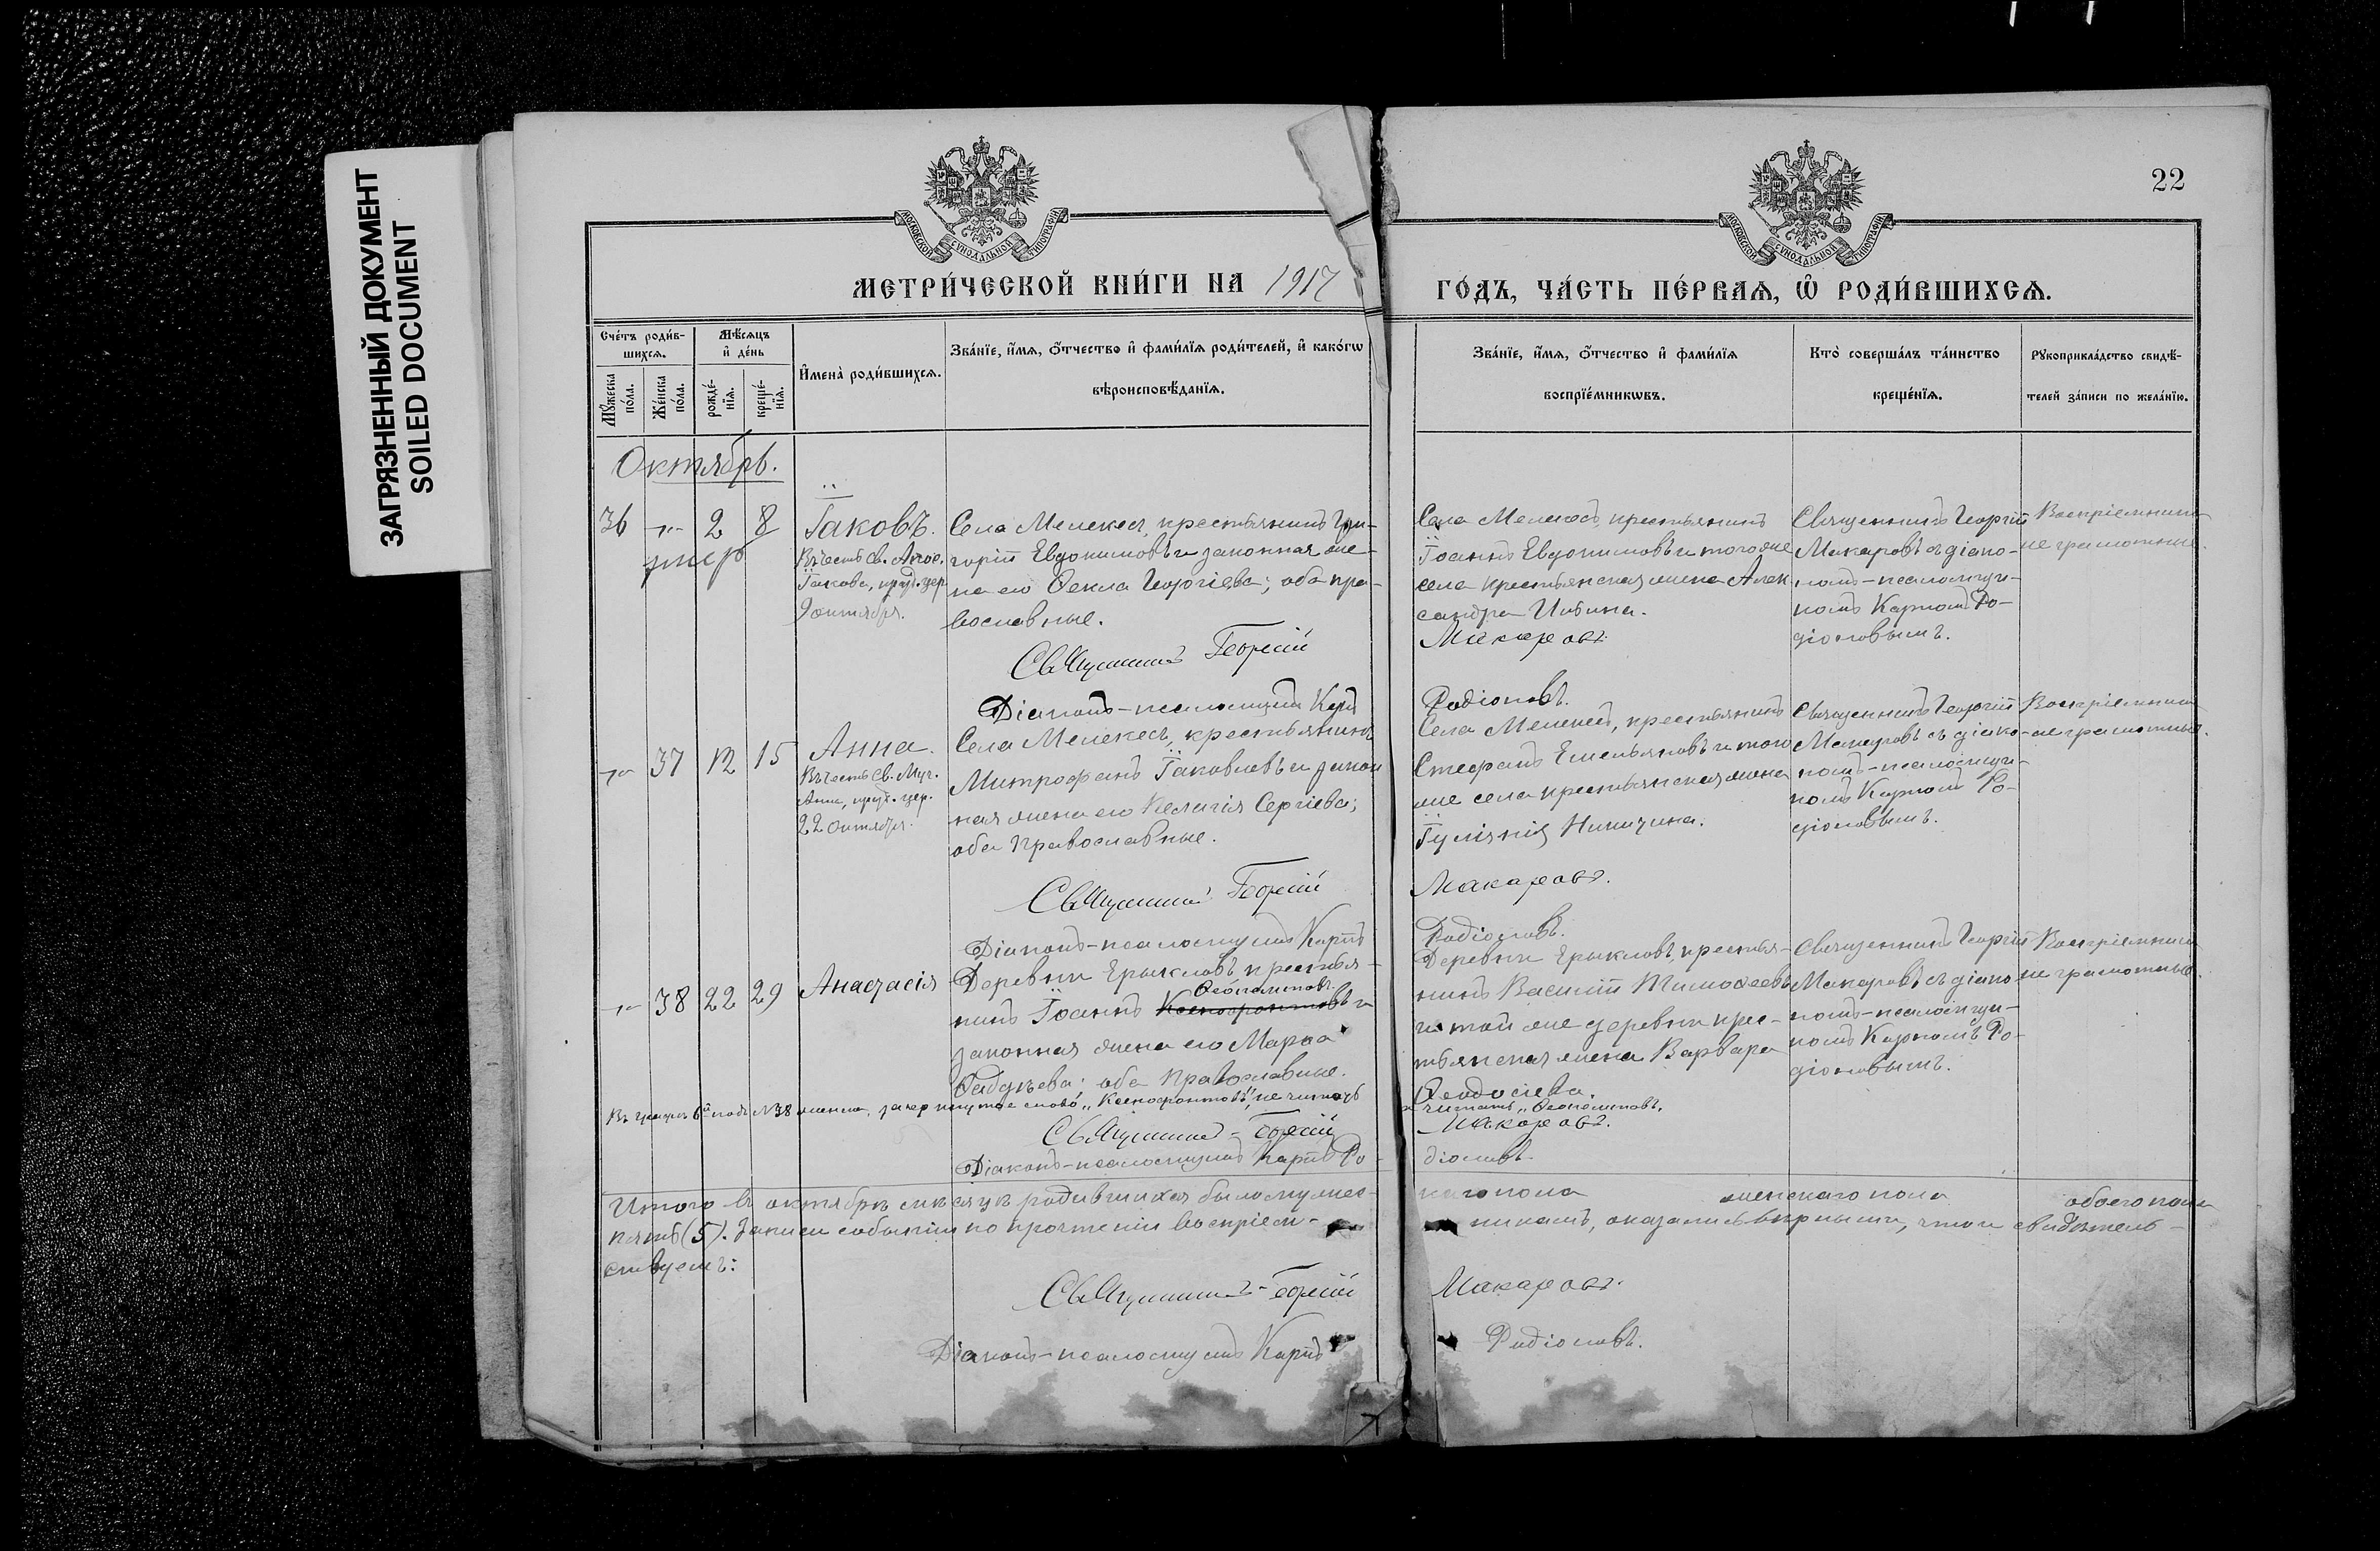 ЗАГРЯЗНЕННЫЙ ДОКУМЕНТ
SOILED DOCUMENT
22
МОСКОВСКОЙ СѴНОДАЛЬНОЙ ТИПОГРАФІИ
МОСКОВСКОЙ СѴНОДАЛЬНОЙ ТИПОГРАФІИ
МЕТРИ́ЧЕСКОЙ КНИ́ГИ НА 1917 ГО́ДЪ, ЧА́СТЬ ПЕ́РВАѦ, Ѡ҆ РОДИ́ВШИХСѦ.
Сче́тъ роди́в-
шихсѧ.
Мꙋ́жеска
по́ла.
Же́нска
по́ла.
Мѣ́сѧцъ
и҆ де́нь
рожде́-
нїѧ.
креще́-
нїѧ.
И҆мена̀ роди́вшихсѧ.
Зва́нїе, и҆́мѧ, ѻ҆́тчество и҆ фами́лїѧ роди́телей, и҆ како́гѡ
вѣроисповѣ́данїѧ.
Зва́нїе, и҆́мѧ, ѻ҆́тчество и҆ фами́лїѧ
воспрїе́мникѡвъ.
Кто̀ соверша́лъ та́инство
креще́нїѧ.
Рꙋкоприкла́дство свидѣ́-
телей за́писи по жела́нїю.
Октябрь.
36 -"- 2 8
умер
Іаковъ.
Въ честь св. Апос.
Іакова, празд. цер.
9 октября.
Села Мелекесъ, крестьянинъ Гри-
горій Евдокимовъ и законная же-
на его Ѳекла Георгіева; оба пра-
вославные.
Села Мелекесъ, крестьянинъ
Іоаннъ Евдокимовъ и того же
села крестьянская жена Алек-
сандра Ильина.
Священникъ Георгій
Макаровъ съ діако-
номъ-псаломщи-
комъ Карпомъ Ро-
діоновымъ.
Воспріемники
не грамотные.
Священникъ Георгій Макаровъ.
Діаконъ-псаломщикъ Карпъ Родіоновъ.
-"- 37 12 15
Анна.
Въ честь св. Муч.
Анны, празд. цер.
22 октября.
Села Мелекесъ, крестьянинъ
Митрофанъ Іаковлевъ и закон
ная жена его Пелагія Сергіева;
оба православные.
Села Мелекесъ, крестьянинъ
Стефанъ Емельяновъ и того
же села крестьянская жена
Іуліанія Никитина.
Священникъ Георгій
Макаровъ съ діако-
номъ-псаломщи-
комъ Карпомъ Ро-
діоновымъ.
Воспріемники
не грамотные.
Священникъ Георгій Макаровъ.
Діаконъ-псаломщикъ Карпъ Родіоновъ.
-"- 38 22 29
Анастасія
Деревни Ерыкловъ, крестья-
Ѳеопемптовъ
нинъ Іоаннъ Ксенофонтовъ и
законная жена его Марѳа
Фаддѣева; оба православные.
Деревни Ерыкловъ, крестья-
нинъ Василій Тимоѳеевъ
и той же деревни крес-
тьянская жена Варвара
Ѳеодосіева.
Священникъ Георгій
Макаровъ съ діако
номъ-псаломщи-
комъ Карпомъ Ро-
діоновымъ.
Воспріемники
не грамотные.
подъ № 38 зачеркнутое слово „Ксенофонтовъ", не читать
а читать „Ѳеопемптовъ.
Священникъ Георгій Макаровъ.
Діаконъ-псаломщикъ Карпъ Родіоновъ.
Итого въ октябрѣ мѣсяцѣ родившихся было мужескаго пола женскаго пола обоего пола
пять (5). Записи событій по прочтеніи воспріем- никамъ, оказались вѣрными, что и свидѣтель-
ствуемъ:
Священникъ Георгій Макаровъ.
Діаконъ-псаломщикъ Карпъ Родіоновъ.